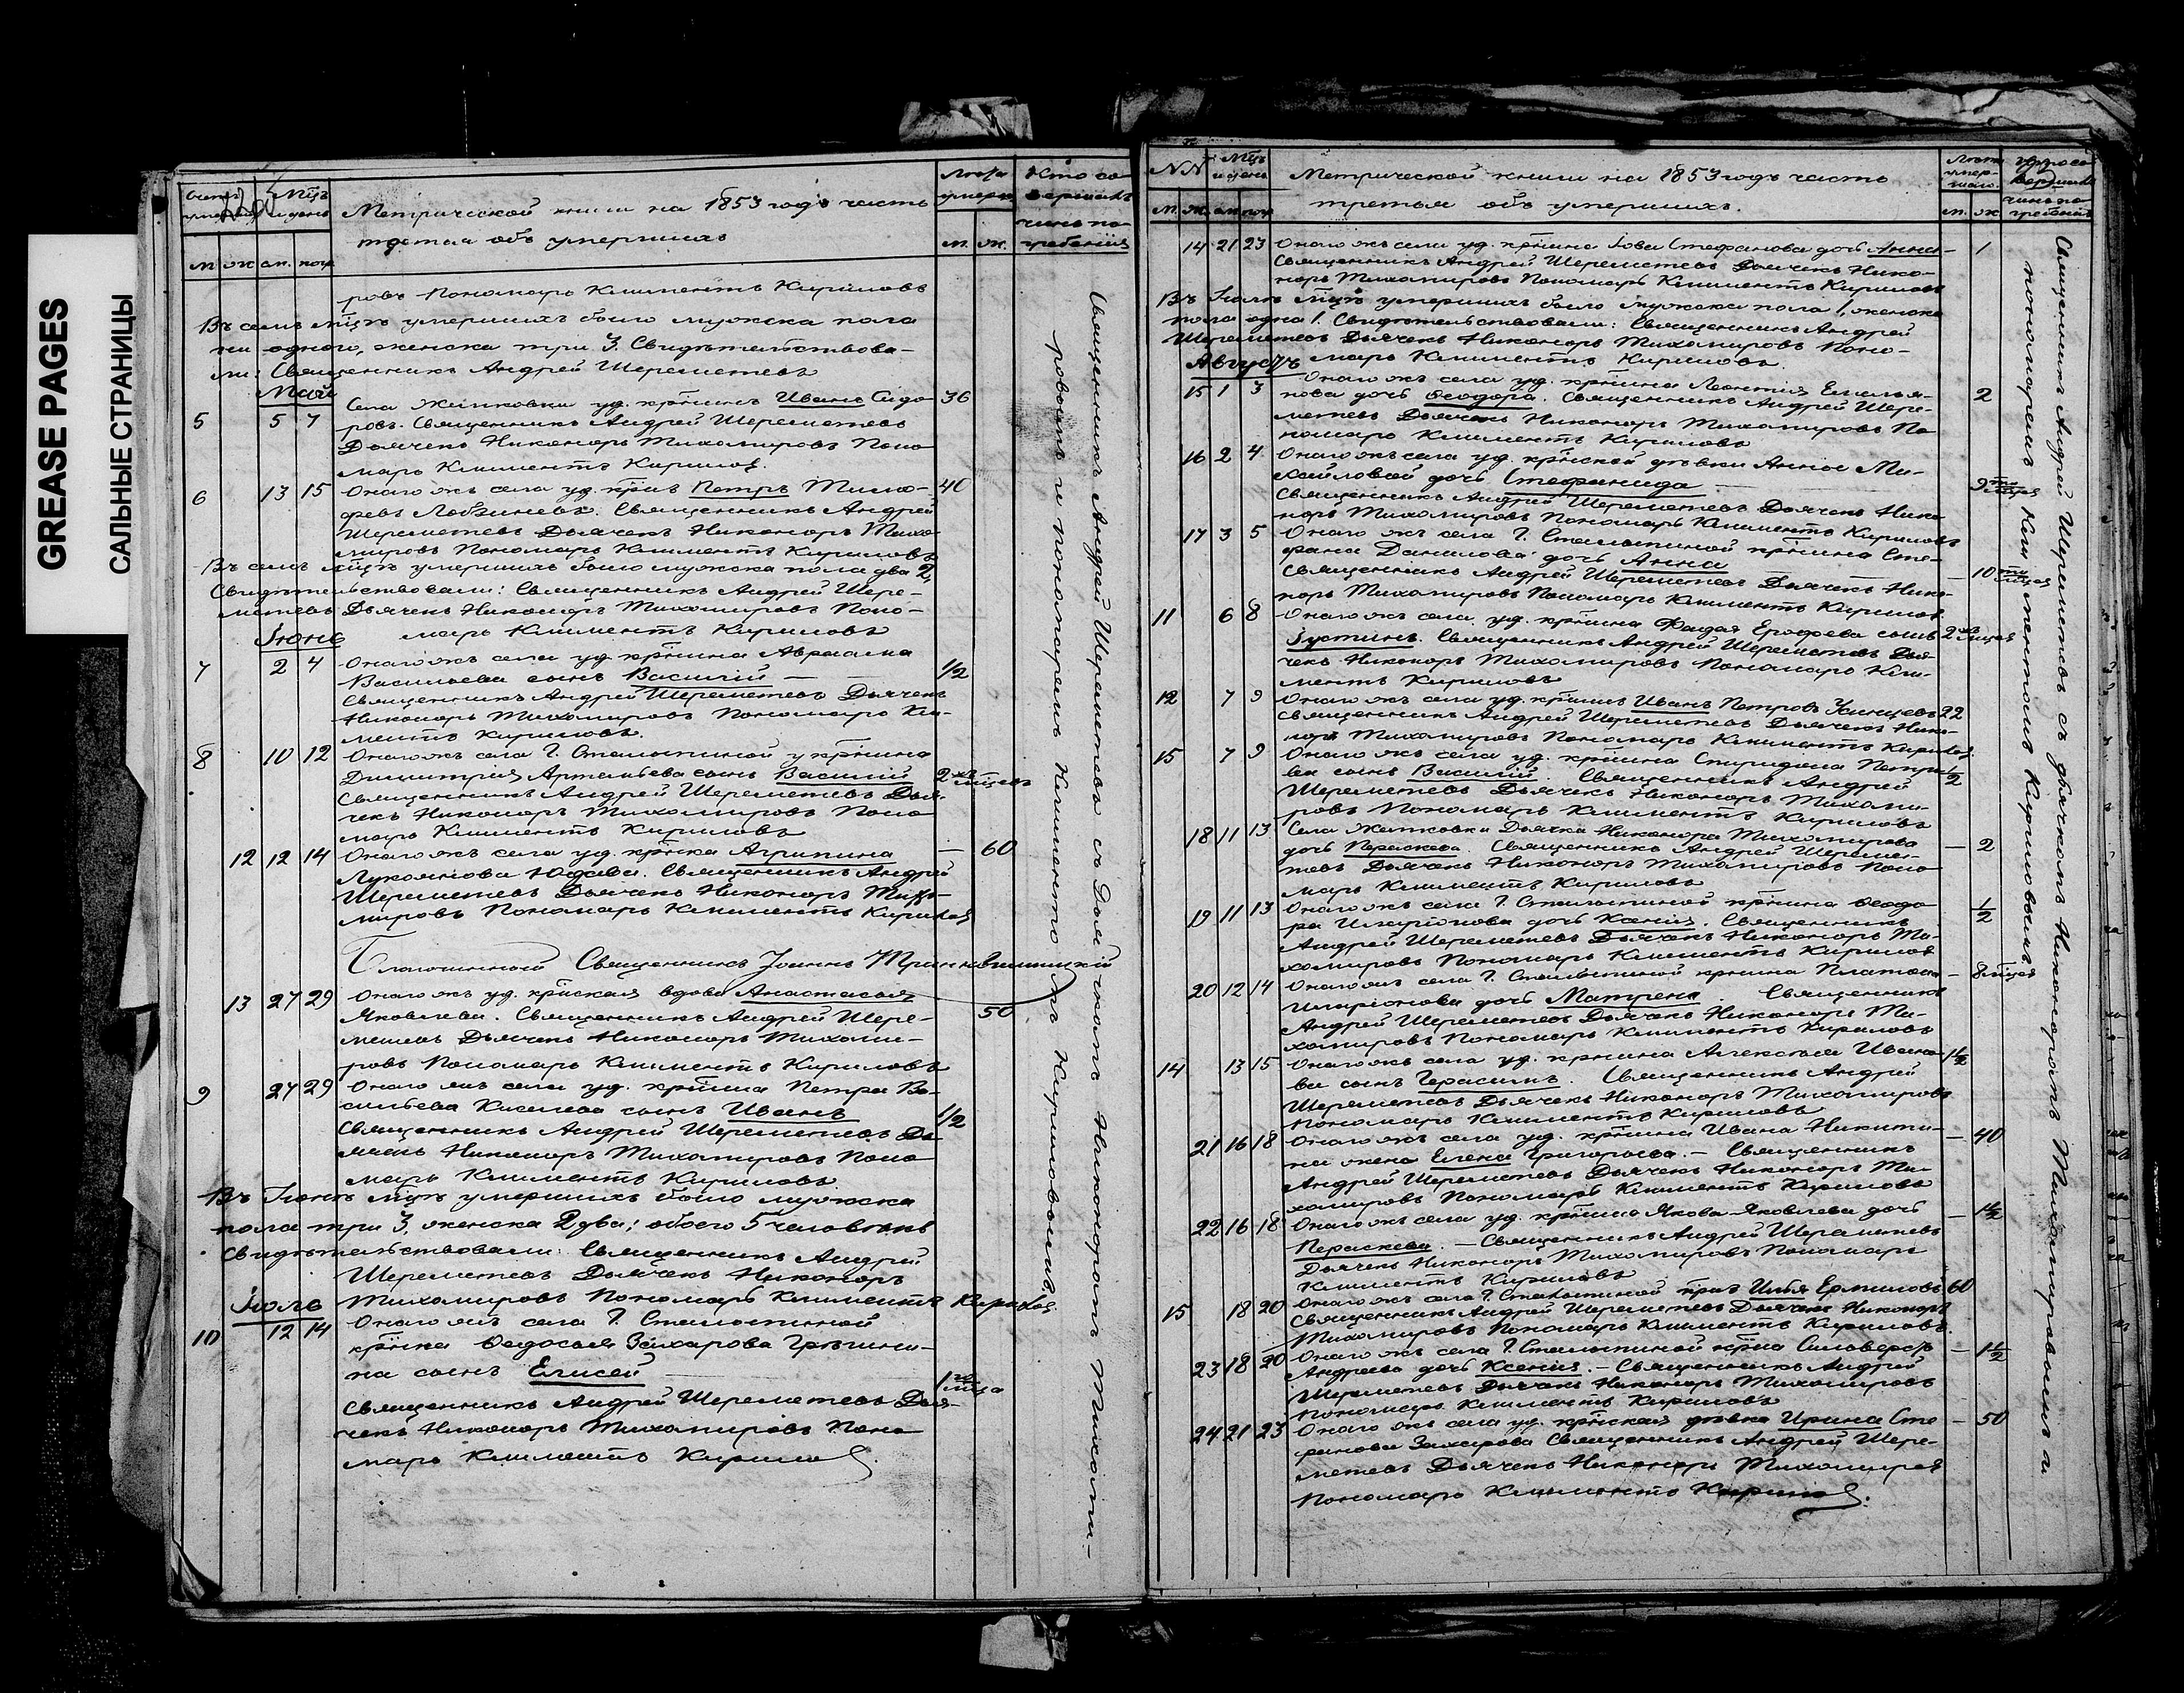 GREASE PAGES
САЛЬНЫЕ СТРАНИЦЫ
Метрической книги на 1853 годъ часть
третья объ умершихъ
Лѣта
Кто со-
вершалъ
чинъ по-
гребенія
м. ж. ум. пог. м. ж.
ровъ Пономарь Климентъ Кириловъ
Въ семъ мцѣ умершихъ было мужска пола
ни одного, женска три 3. Свидѣтельствова-
ли: Священникъ Андрей Шереметевъ
Май
5 5 7 Села Жатковки уд. крнинъ Иванъ Сидо- 36
ровъ. Священникъ Андрей Шереметевъ
Дьячекъ Никаноръ Тихомировъ Поно
марь Климентъ Кирилов.
6 13 15 Онагожъ села уд. Петръ Тимо- 40
феевъ Священникъ Андрей
Шереметевъ Дьячекъ Никаноръ Тихо-
мировъ Пономарь Климентъ Кириловъ
Въ семъ мцѣ умершихъ было мужска пола два 2,
Свидѣтельствовали: Священникъ Андрей Шере-
метевъ Дьячекъ Никаноръ Тихомировъ Поно-
марь Климентъ Кириловъ
Іюнь
7 2 4 Онагожъ села уд. крнина Авраама
Васильева сынъ Василій — 1/2
Священникъ Андрей Шереметевъ Дьячекъ
Никаноръ Тихомировъ Пономарь Кли-
ментъ Кириловъ.
8 10 12 Онагожъ села Г. Столыпиной крнина
Димитрія Артемьева сынъ Василій 2хъ мцевъ
Священникъ Андрей Шереметевъ Дья-
чекъ Никаноръ Тихомировъ Поно
марь Климентъ Кириловъ
12 12 14 Онагожъ села уд. крнка Агрипина — 60
Лукоянова Юдаева. Священникъ Андрей
Шереметевъ Дьячекъ Никаноръ Тихо-
мировъ Пономарь Климентъ Кирилов
Благочинный Священникъ Іоаннъ
13 27 29 Онагожъ уд. крнская вдова Анастасья
Яковлева. Священникъ Андрей Шере- 50
метевъ Дьячекъ Никаноръ Тихоми-
ровъ Пономарь Климентъ Кириловъ
9 27 29 Онагожъ села уд. крнина Петра Ва-
сильева Киселева сынъ Иванъ 1/2
Священникъ Андрей Шереметевъ Дь-
ячекъ Никаноръ Тихомировъ Поно
марь Климентъ Кириловъ.
Въ Іюнѣ мцѣ умершихъ было мужска
пола три 3, женска 2 два; обоего 5 человѣкъ
Свидѣтельствовали: Священникъ Андрей
Шереметевъ Дьячекъ Никаноръ
Тихомировъ Пономарь Климентъ Кирилов
Іюль
10 12 14 Онагожъ села Г. Столыпиной
крнка Федосья Захарова
на сынъ Елисей — 1го мца
Священникъ Андрей Шереметевъ Дья-
чекъ Никаноръ Тихомировъ Поно
марь Климентъ Кирилов.
Священникъ Андрей Шереметевъ съ Дьячкомъ Никаноромъ Тихоми-
ровымъ и пономаремъ Климентомъ Кириловымъ
NN Мцъ и день
Метрической книги на 1853 годъ часть
третья объ умершихъ.
Лѣта умер-шаго
Кто со
вершалъ
чинъ по-
гребенія
м. ж. ум. пог. м. ж.
14 21 23 Онагожъ села уд. крнина Іова Стефанова дочь Анна — 1
Священникъ Андрей Шереметевъ Дьячекъ Ника-
норъ Тихомировъ Пономарь Климентъ Кириловъ
Въ Іюлѣ мцѣ умершихъ было мужска пола 1, женска
пола одна 1. Свидѣтельствовали: Священникъ Андрей
Шереметевъ Дьячекъ Никаноръ Тихомировъ Поно-
марь Климентъ Кириловъ.
Августъ
15 1 3 Онагожъ села уд. крнина Леонтія Емелья-
нова дочь Ѳеодора. Священникъ Андрей Шере- 2
метевъ Дьячекъ Никаноръ Тихомировъ По
номарь Климентъ Кириловъ
16 2 4 Онагожъ села уд. крнской дѣвки Анны Ми-
хайловой дочь Стефанида — 9ти мцев
Священникъ Андрей Шереметевъ Дьячекъ Ника-
норъ Тихомировъ Пономарь Климентъ Кириловъ
17 3 5 Онагожъ села Г. Столыпиной крнина Сте-
фана Данилова дочь Анна — 10ти мцев
Священникъ Андрей Шереметевъ Дьячекъ Ника-
норъ Тихомировъ Пономарь Климентъ Кирилов
11 6 8 Онагожъ села уд. крнина Фадея Ерофеева сынъ 2хъ мцев
Іустинъ. Священникъ Андрей Шереметевъ Дья-
чекъ Никаноръ Тихомировъ Пономарь Кли-
ментъ Кириловъ
12 7 9 Онагожъ села уд. крнинъ Иванъ Петровъ 22
Священникъ Андрей Шереметевъ Дьячекъ Ника-
норъ Тихомировъ Пономарь Климентъ Кирилов
15 7 9 Онагожъ села уд. крнина Спиридона Петро 1/2
ва сынъ Василій. Священникъ Андрей
Шереметевъ Дьячекъ Никаноръ Тихоми-
ровъ Пономарь Климентъ Кириловъ
18 11 13 Села Жатковки Дьячка Никанора Тихомирова
дочь Параскева. Священникъ Андрей Шереме- — 2
тевъ Дьячекъ Никаноръ Тихомировъ Поно
марь Климентъ Кириловъ
19 11 13 Онагожъ села Г. Столыпиной крнина Ѳеодо-
ра Иларіонова дочь Ксенія. Священникъ 1/2
Андрей Шереметевъ Дьячекъ Никаноръ Ти-
хомировъ Пономарь Климентъ Кирилов
20 12 14 Онагожъ села Г. Столыпиной крнина Платона — 8 мцев
Иларіонова дочь Матрена. Священникъ
Андрей Шереметевъ Дьячекъ Никаноръ Ти-
хомировъ Пономарь Климентъ Кириловъ
14 13 15 Онагожъ села уд. крнина Алексѣя Ивано- 1 1/2
ва сынъ Герасимъ. Священникъ Андрей
Шереметевъ Дьячекъ Никаноръ Тихомировъ
Пономарь Климентъ Кириловъ
21 16 18 Онагожъ села уд. крнина Ивана Никити- — 40
на жена Елена Григорьева. — Священникъ
Андрей Шереметевъ Дьячекъ Никаноръ Ти-
хомировъ Пономарь Климентъ Кириловъ
22 16 18 Онагожъ села уд. крнина Якова Яковлева дочь — 1 1/2
Параскева. — Священникъ Андрей Шереметевъ
Дьячекъ Никаноръ Тихомировъ Пономарь
Климентъ Кириловъ
15 18 20 Онагожъ села Г. Столыпиной Илья Ермиловъ 60
Священникъ Андрей Шереметевъ Дьячекъ Никаноръ
Тихомировъ Пономарь Климентъ Кириловъ.
23 18 20 Онагожъ села Г. Столыпиной Сильверстъ — 1 1/2
Андреева дочь Ксенія. — Священникъ Андрей
Шереметевъ Дьячекъ Никаноръ Тихомировъ
Пономарь Климентъ Кириловъ
24 21 23 Онагожъ села уд. крнская дѣвка Ирина — 50
Захарова Священникъ Андрей Шере-
метевъ Дьячекъ Никаноръ Тихомиров
Пономарь Климентъ Кирилов.
Священникъ Андрей Шереметевъ съ дьячкомъ Никаноромъ Тихомировымъ и
пономаремъ Климентомъ Кириловымъ